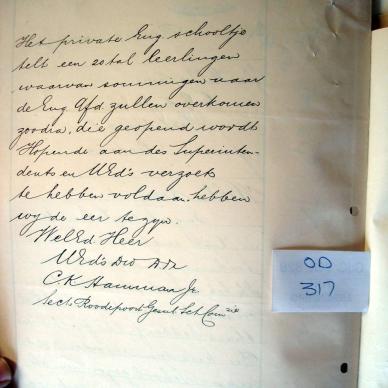 Het private Eng. schooltje
telt een 20tal leerlingen
waarvan sommigen naar
de Eng Afd zullen overkomen
zoodra, die geopend wordt
Hopende aan des Superinten-
dents en UEd's verzoek
te hebben voldaan, hebben
wy de eer te zyn.
WelEd Heer
UEd's Dw Dr
C K Hamman Jr.
Sect. Roodepoort Gemt Sch Comsie
OD
317